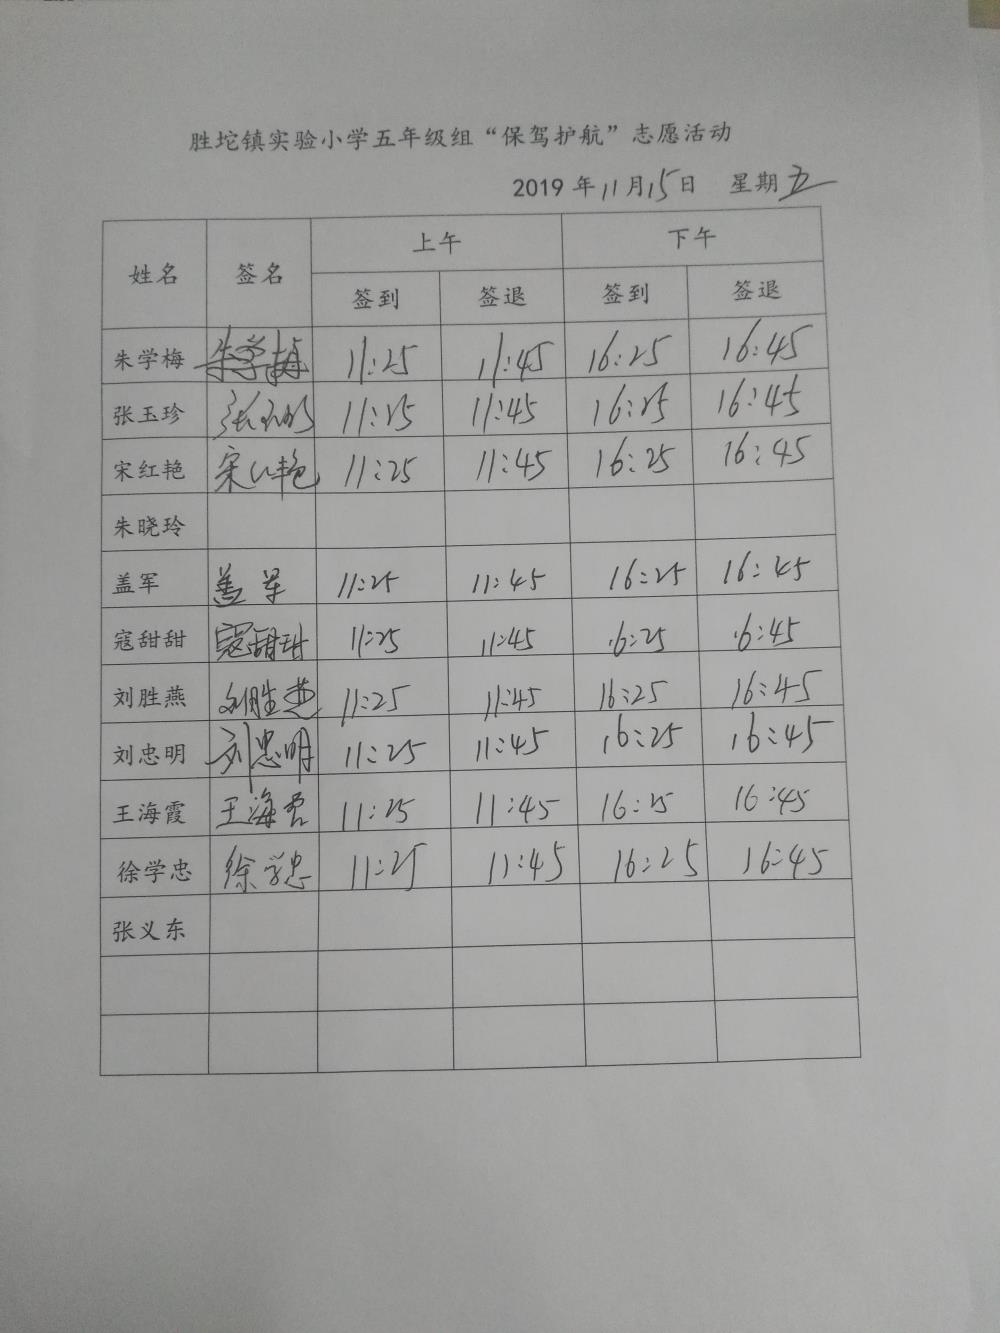 胜坨镇实验小学五年级组“保驾护航”志愿活动
2019 年 11 月 15 日 星期 五
姓名 签名 上午 下午
签到 签退 签到 签退
朱学梅 朱学梅 11:25 11:45 16:25 16:45
张玉珍 张玉珍 11:25 11:45 16:25 16:45
宋红艳 宋红艳 11:25 11:45 16:25 16:45
朱晓玲
盖军 盖军 11:25 11:45 16:25 16:45
寇甜甜 寇甜甜 11:25 11:45 16:25 16:45
刘胜燕 刘胜燕 11:25 11:45 16:25 16:45
刘忠明 刘忠明 11:25 11:45 16:25 16:45
王海霞 王海霞 11:25 11:45 16:25 16:45
徐学忠 徐学忠 11:25 11:45 16:25 16:45
张义东